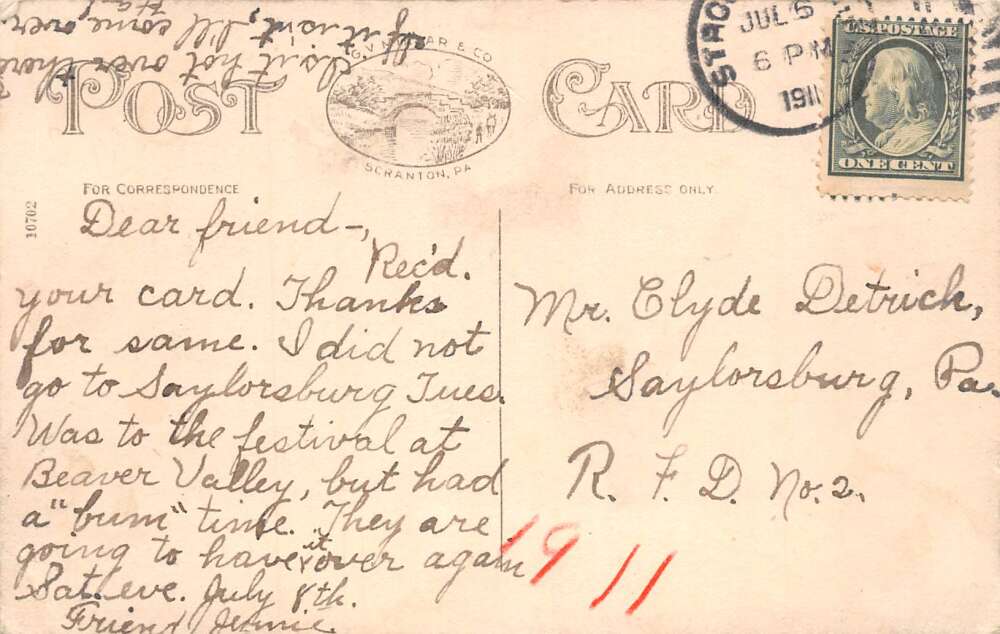 Is it hot over there
If it isn't, I'll come over
STRO
JUL 5
6 PM
1911
U.S. POSTAGE
ONE CENT
POST CARD
& CO
SCRANTON, PA
FOR CORRESPONDENCE
FOR ADDRESS ONLY.
10702
Dear friend-,
Rec'd.
your card. Thanks
for same. I did not
go to Saylorsburg Tues.
Was to the festival at
Beaver Valley, but had
a "bum" time. They are
going to have it over again
Sat. eve. July 8th.
Friend Jennie
Mr. Clyde Detrick,
Saylorsburg, Pa.
R. F. D. No. 2.
1911